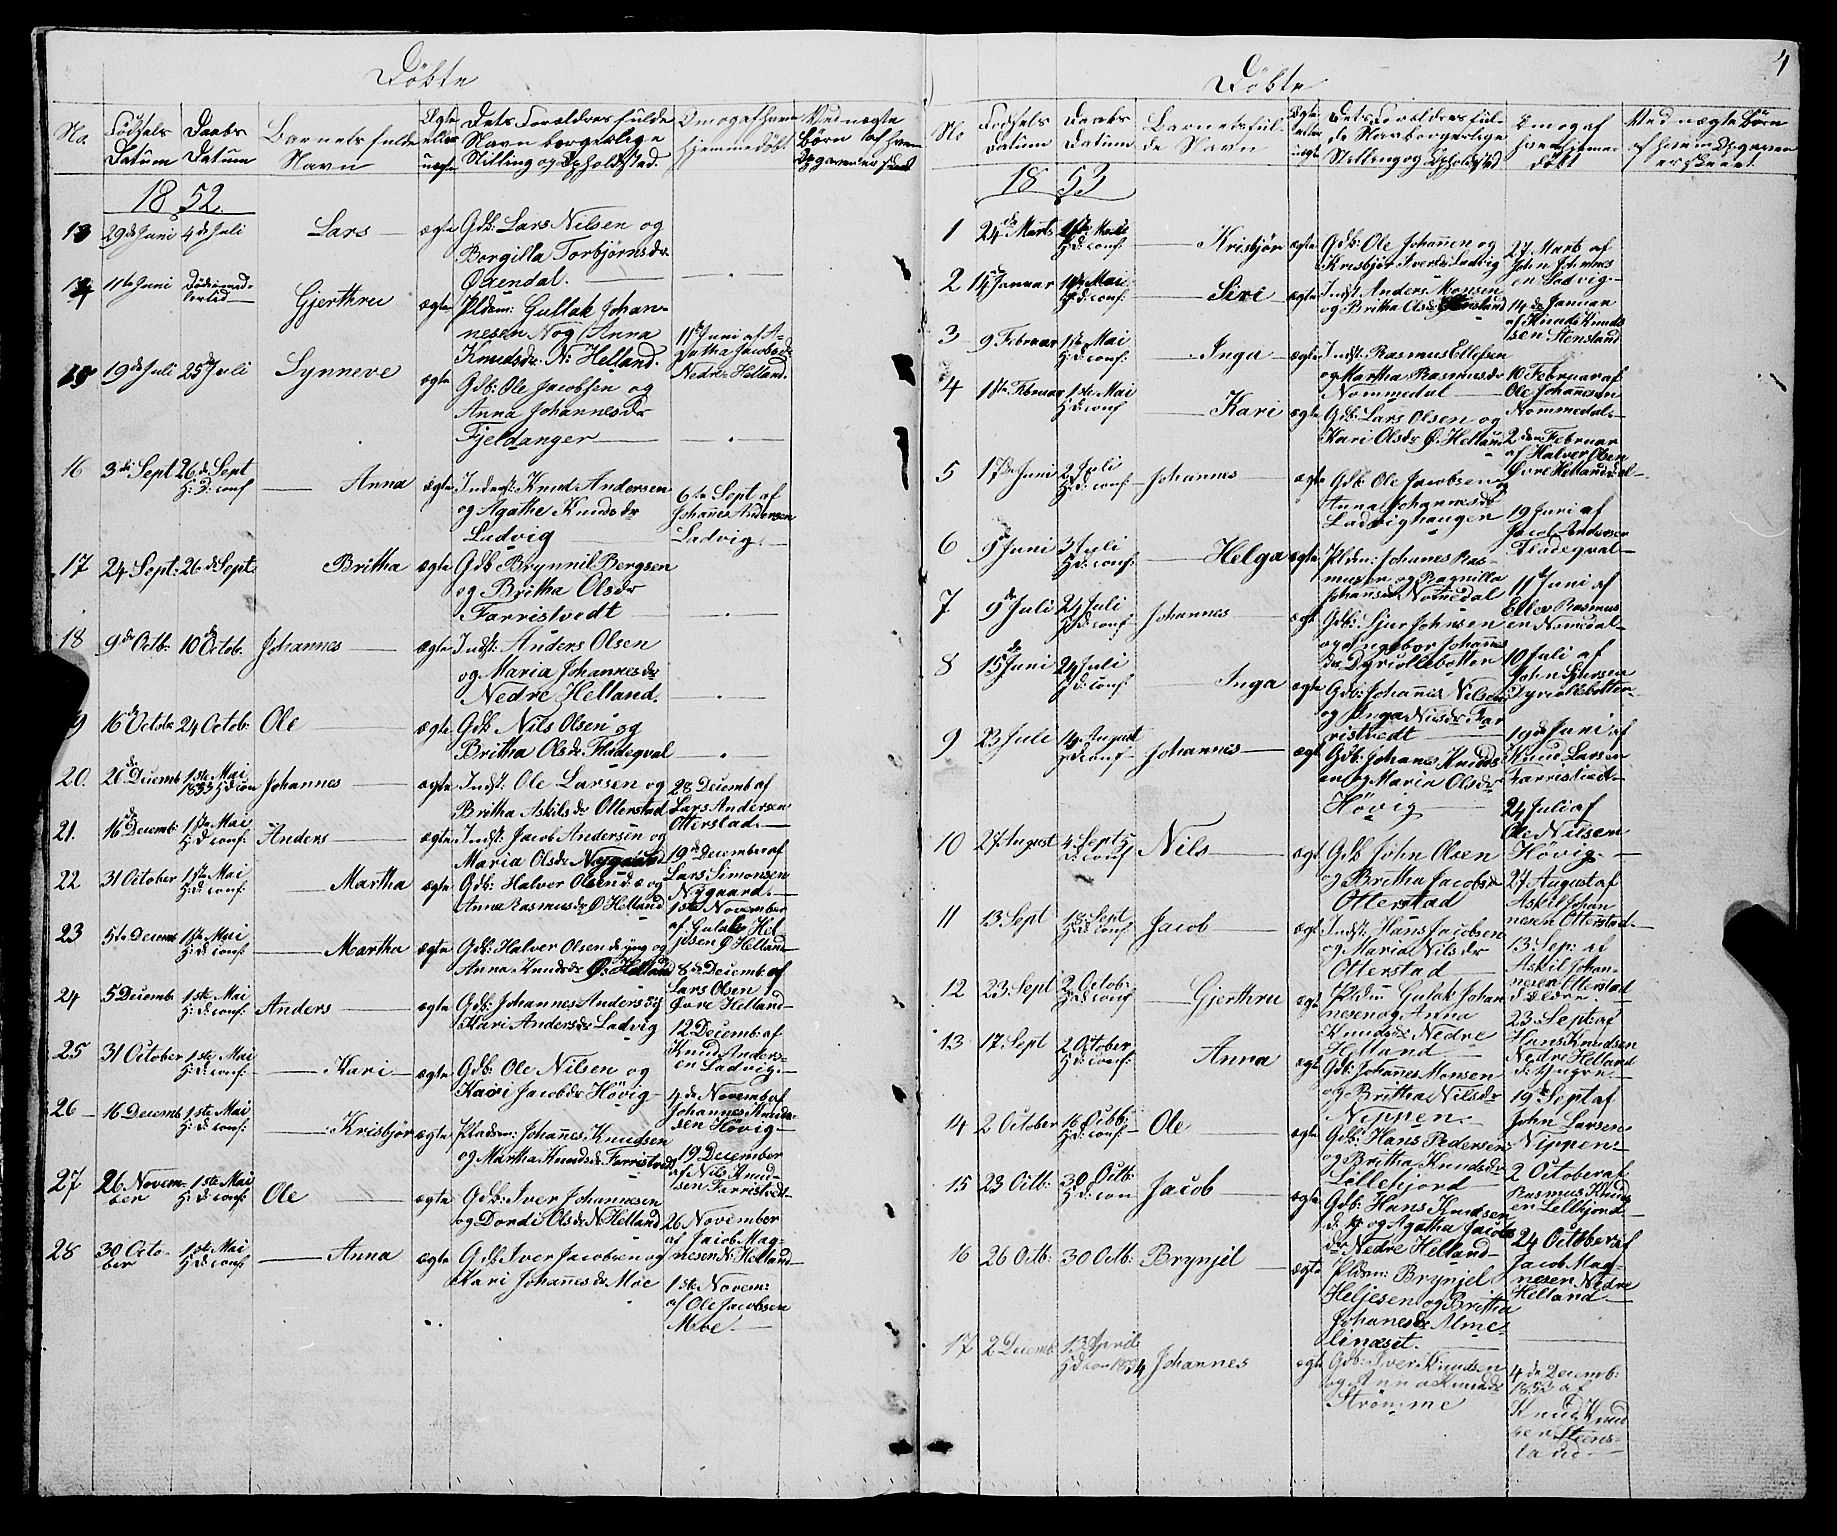 Döbte
No. Födsels Datum Daabs Datum Barnets fulde Navn Ægte eller uægte Dets Forældres fulde Navn borgerlige Stilling og Opholdsted. Om og af hvem hjemmedöbt Ved uægte Börn
1852.
13 29 de Juni 4 de Juli Lars ægte Gdb: Lars Nilsen og
Borgilla Torbjörnsdr
Oxendal.
14 11te Juni Gjerthru ægte Pldsm: Gullak Johan-
nesen N og Anna
Knudsdr. N: Helland.
11 Juni af A-
gatha Jacobsdr
Nedre Helland.
15 19 de Juli 25 de Juli Synneve ægte Gdb: Ole Jacobsen og
Anna Johannesdr
Fjeldanger
16 3 de Sept 26 de Sept H: D: conf Anna ægte Inderst: Knud Andersen
og Agathe Knudsdr
Ladvig
6te Sept af
Johannes Andersen
Ladvig.
17 24 Sept: 26 de Sept. Britha ægte Gdb Brynnil Bergsen
og Britha Olsdr
Farristvedt
18 9 de Octb. 10 de Octob. Johannes ægte Indst: Anders Olsen
og Maria Johannesdr
Nedre Helland.
9 16 de Octob 24 Octob. Ole ægte Gdb Nils Olsen og
Britha Olsdr Flódeqval
20. 26 de Decemb 1ste Mai 1853 H d con Johannes ægte Indst: Ole Larsen og
Britha Askilsdr Otterstad
28 Decemb af
Lars Andersen
Otterstad.
21. 16 de Decemb 1ste Mai H: d: conf: Anders ægte Indst: Jacob Andersen og
Maria Olsdr Nygaard
19 de December af
Lars Simonsen
Nygaard.
22 31 October 1ste Mai H: d: conf: Martha ægte Gdb: Halver Olsen d: æ og
Anna Rasmusdr Ø Helland
1ste November
af Gulak Hel-
jesen Ø Helland
23 5te Decemb 1ste Mai H: d: conf: Martha ægte Gdb: Halver Olsen de yng og
Anna Knudsdr Ø: Helland
8 de Decemb: af
Lars Olsen
Övre Helland
24 5 Decemb 1ste Mai H: d: conf: Anders ægte Gdb: Johannes Anders og
Kari Andersdr Ladvig
12 Decemb: af
Knud Anders-
en Ladvig.
25 31 October 1ste Mai H: d: conf: Kari ægte Gdb: Ole Nilsen og
Kari Jacobsdr Hövig
4 de November af
Johannes Knud-
sen Hövig
26 16 Decemb 1ste Mai H: d: conf: Krisbjör ægte Pladsm: Johannes Knudsen
og Martha Knudsdr Farristvedt
19 December
af Nils Knud-
sen Farristvedt
27 26 Novem-
ber 1ste Mai H: d: conf: Ole ægte Gdb: Iver Johannesen
og Dordi Olsdr N Helland
26 November
af Jacob Mag-
nesen N: Helland
28 30 Octo-
ber 1ste Mai H: d: conf Anna ægte Gdb: Iver Jacobsen og
Kari Johannesdr Moe
1ste Novem:
af Ole Jacobsen
Moe.
4
Döbte
No Födsels Datum Daabs Datum Barnets ful-
de Navn Ægte eller uægte Dets Forældres ful-
de Navn borgerlige
Stilling og Opholdsted Om og af
hvem hjemme-
döbt Ved uægte Börn
1853
1 24 de Marts H: d: conf: Krisbjör ægte Gdb: Ole Johannesen og
Krisbjör Iversdr Ladvig
27 Marts af
John Johannes
en Ladvig
2 14 Januar Mai H: d: conf: Siri ægte Indst: Anders Monsen
og Britha Olsdr
14 de Januar
af Knud Knud-
sen Stensland
3 9 Februar 1ste Mai H: d: conf: Inga ægte Indst: Rasmus Ellefsen
og Martha Rasmusdr
Nommedal
10 Februar af
Ole Johannesen
Nommedal
4 1ste Februar 1ste Mai H: d: conf Kari ægte Gdb: Lars Olsen og
Kari Olsdr Ø: Helland
2 den Februar
af Halver Olsen
Övre Helland
5 17 de Juni 2 Juli H: d: conf Johannes ægte Gdb. Ole Jacobsen og
Anna Johannesdr
Ladvighaugen
19 Juni af
Jacob Andersen
Flodeqval
6 9 Juni 3 Juli H: d: conf: Helga ægte Pldsm: Johannes Ras-
musen og Ragnilla
Johannesdr Nomedal
11 Juni af
Ellev Rasmus
en Nomedal
7 9 de Juli 24 Juli H: d: conf: Johannes ægte Gdb: Sjur Johnsen
og Ingebor Johannes
dr Dyrcollebotten
10 Juli af
John Sjursen
Dyrcollebotten
8 15 de Juni 24 Juli H: d: conf: Inga ægte Gdb: Johannes Nilsen
og Inga Nilsdr Far
ristvedt
19 de Juni af
Knud Larsen
Farristvedt
9 23 Juli 14 August H: d: conf Johannes ægte Gdb: Johanes Knuds
en og Maria Olsdr
Hövig
24 Juli af
Ole Nilsen
Hövig.
10 27 August 4 Sept d: conf Nils ægte Gdb John Olsen
og Britha Jacobsdr
Otterstad
27 August af
Askil Johan
nesen Otterstad
11 13 Sept 18 Sept H: d: conf Jacob ægte Indst: Hans Jacobsen
og Maria Nilsdr
Otterstad
13 Sep: af
Askil Johan-
nesen Otterstad
d: ældre
12 23 Sept 2 Octob: H: d: conf Gjerthru ægte Pldm: Gulak Johan
nesen og Anna
Knudsdr Nedre
Helland
23 Sept: af
Hans Knudsen
Nedre Helland
d: yngre
13 17 Sept 2 October H: d: conf: Anna ægte Gdb: Johannes Monsen
og Britha Nilsdr
Neppen
19 de Sept af
John Larsen
Nippen
14 2 October 16 Octb: H: d: conf: Ole ægte Gdb: Hans Pedersen
og Britha Knudsdr
Lillefjord
2 October af
Rasmus Knuds
en Lillefjord
15 23 Octb: 30 Octb: H: d: con Jacob ægte Gdb: Hans Knudsen
d: y og Agatha Jacobs
dr Nedre Helland
24 October af
Jacob Mag-
nesen Nedre
Helland
16 26 Octb: 30 Octb: Brynjel ægte Pldsm: Brynjel
Heljesen og Britha
Johanesdr Alme
linæset.
17 2 Decemb: 13 April H: d: con 1854 Johannes ægte Gdb: Iver Knudsen
og Anna Knudsdr
Strömme
4 de Decemb:
1853 af
Knud Knud
sen Steens-
land